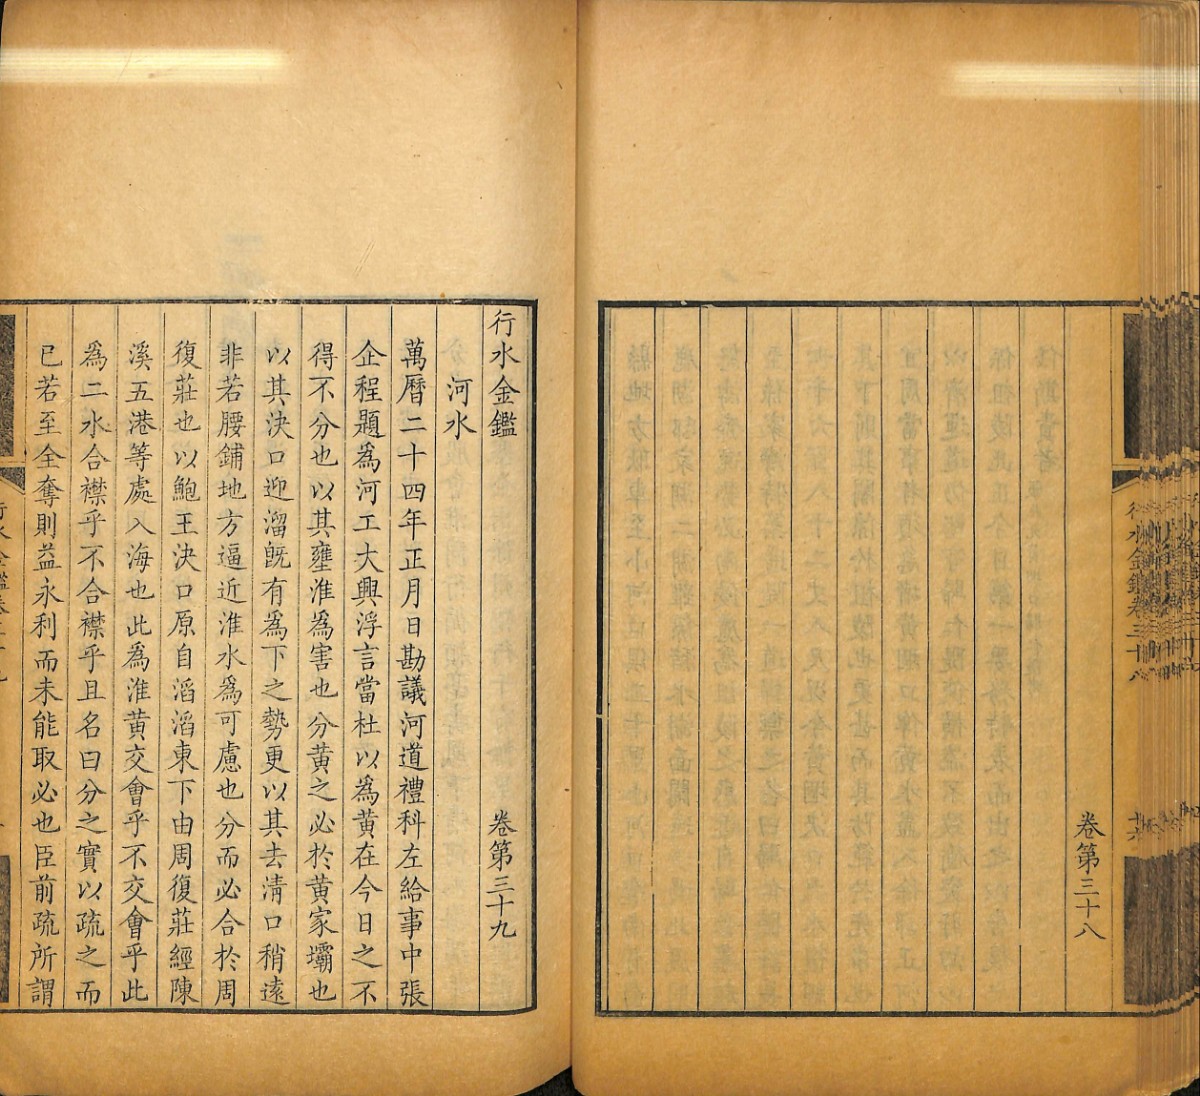 卷第三十八
行水金鑑 卷第三十九
河水
萬曆二十四年正月日勘議河道禮科左給事中張
企程題為河工大興浮言當杜以為黃在今日之不
得不分也以其壅淮為害也分黃之必於黃家壩也
以其決口迎溜旣有為下之勢更以其去清口稍遠
非若腰鋪地方逼近淮水為可慮也分而必合於周
復莊也以鮑王決口原自滔滔東下由周復莊經陳
溪五港等處入海也此為淮黃交會乎不交會乎此
為二水合襟乎不合襟乎且名曰分之實以疏之而
已若至全奪則益永利而未能取必也臣前疏所謂